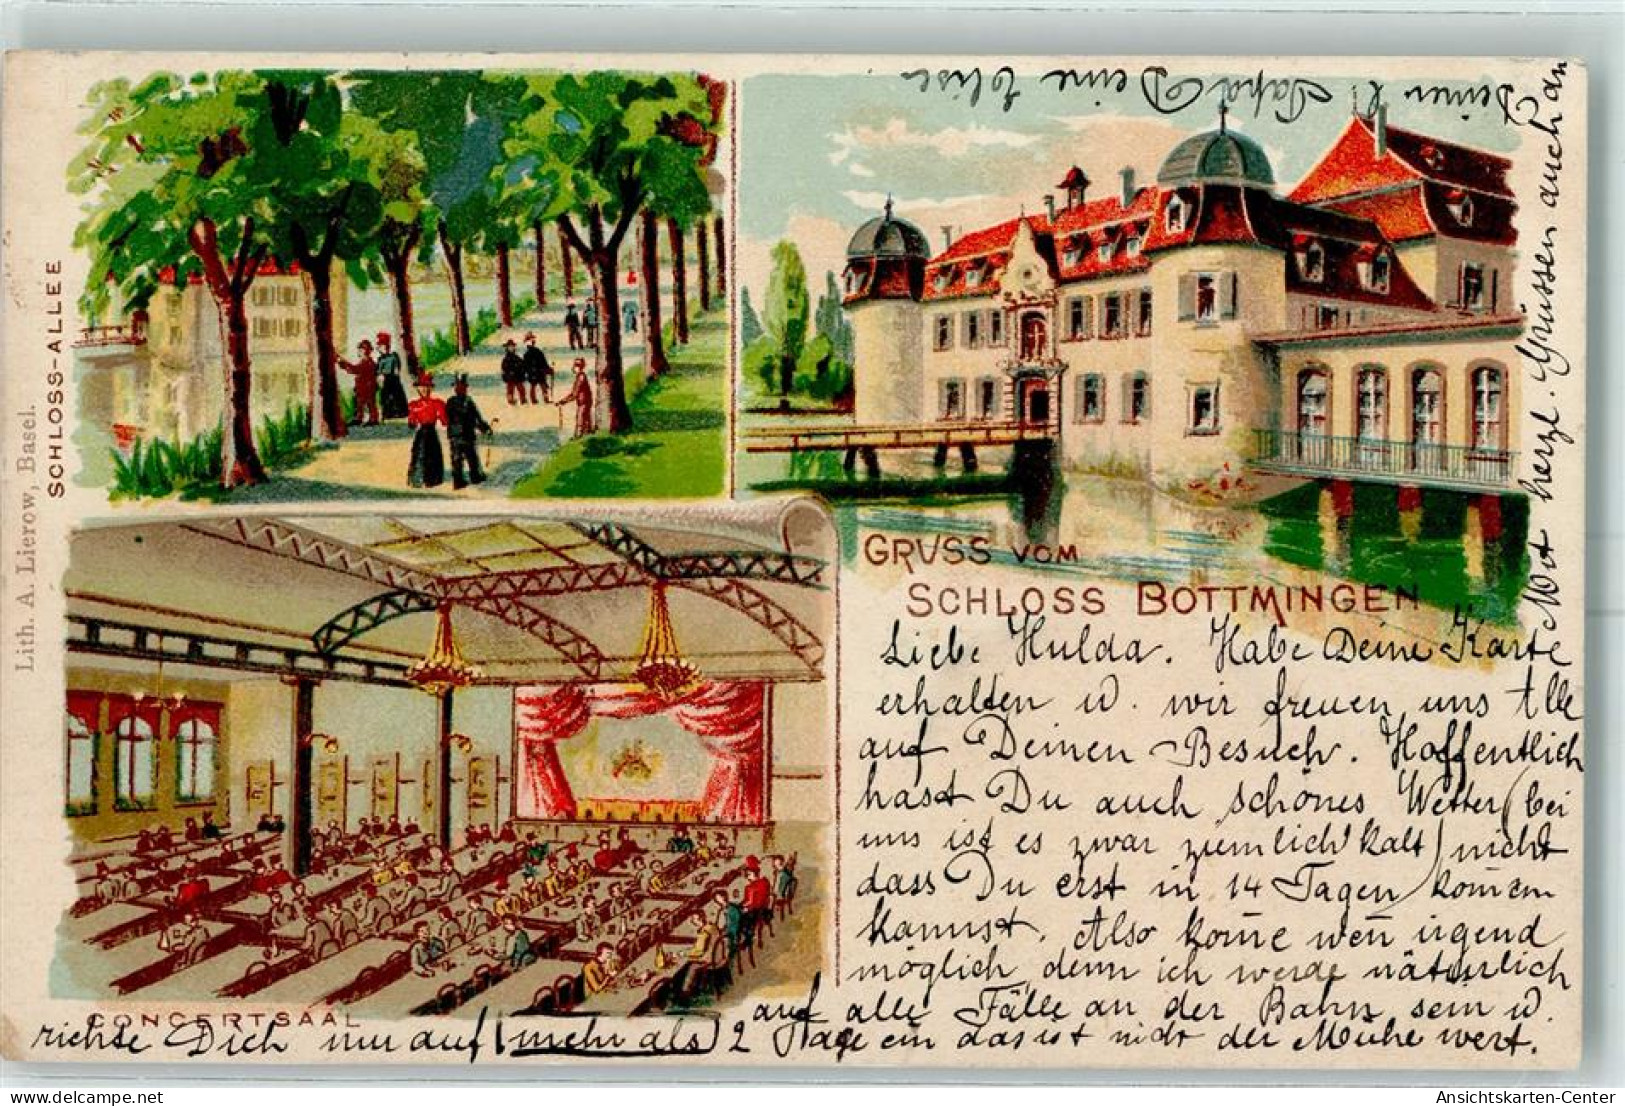 SCHLOSS-ALLEE
Lith. A. Lierow, Basel.
GRUSS VOM
SCHLOSS BOTTMINGEN
CONCERTSAAL
Liebe Hulda. Habe Deine Karte
erhalten u. wir freuen uns Alle
auf Deinen Besuch. Hoffentlich
hast Du auch schönes Wetter (bei
uns ist es zwar ziemlich kalt) nicht
dass Du erst in 14 Tagen kom̄em
kannst. Also kom̄e wen̄ irgend
möglich, denn ich werde natürlich
auf alle Fälle an der Bahn sein u.
richte Dich nur auf (mehr als) 2 Tage ein das ist nicht der Mühe wert.
Mit herzl. Grüssen auch an
Deinen l. Papa Deine Elise.
Ansichtskarten-Center